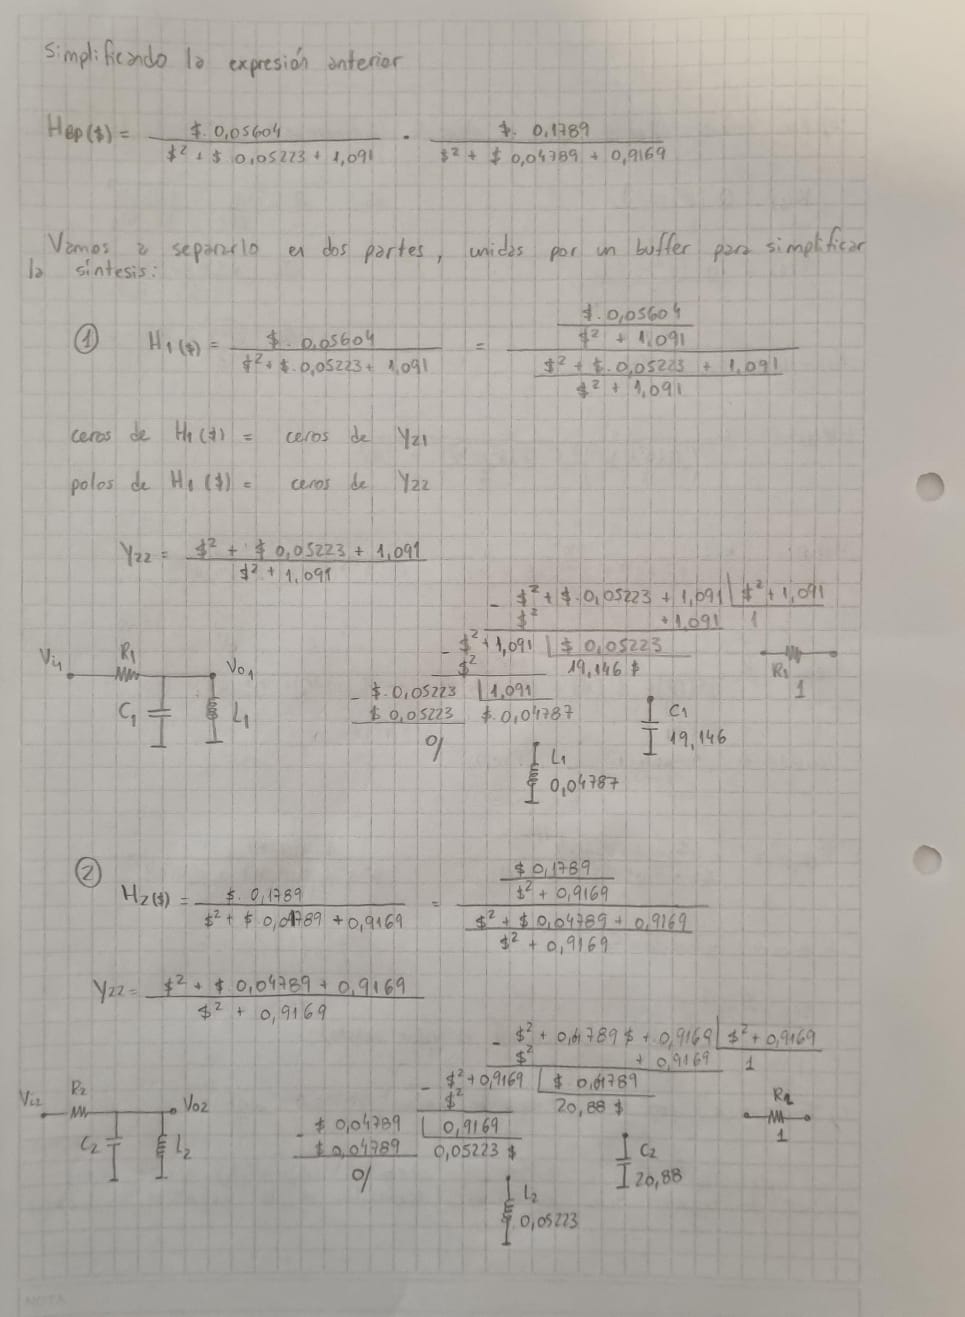 Simplificando la expresión anterior
H_BP($) = $. 0,05604 / ($² + $ 0,05223 + 1,091) · $. 0,1789 / ($² + $ 0,04789 + 0,9169)
Vamos a separarlo en dos partes, unidas por un buffer para simplificar
la síntesis:
① H₁($) = $. 0,05604 / ($² + $. 0,05223 + 1,091) = ($. 0,05604 / ($² + 1,091)) / (($² + $. 0,05223 + 1,091) / ($² + 1,091))
ceros de H₁($) = ceros de Y₂₁
polos de H₁($) = ceros de Y₂₂
Y₂₂ = ($² + $ 0,05223 + 1,091) / ($² + 1,091)
- $² + $. 0,05223 + 1,091 | $² + 1,091
$² + 1,091 1
- $² + 1,091 | $ 0,05223
$² 19,146 $
- $. 0,05223 | 1,091
$ 0,05223 $. 0,04787
0/
R₁
1
C₁
19,146
L₁
0,04787
Vi₁ R₁ Vo₁
C₁ L₁
② H₂($) = $. 0,1789 / ($² + $ 0,04789 + 0,9169) = ($ 0,1789 / ($² + 0,9169)) / (($² + $ 0,04789 + 0,9169) / ($² + 0,9169))
Y₂₂ = ($² + $. 0,04789 + 0,9169) / ($² + 0,9169)
- $² + 0,04789 $ + 0,9169 | $² + 0,9169
$² + 0,9169 1
- $² + 0,9169 | $ 0,04789
$² 20,88 $
- $ 0,04789 | 0,9169
$ 0,04789 0,05223 $
0/
R₂
1
C₂
20,88
L₂
0,05223
Vi₂ R₂ Vo2
C₂ L₂
NOTA